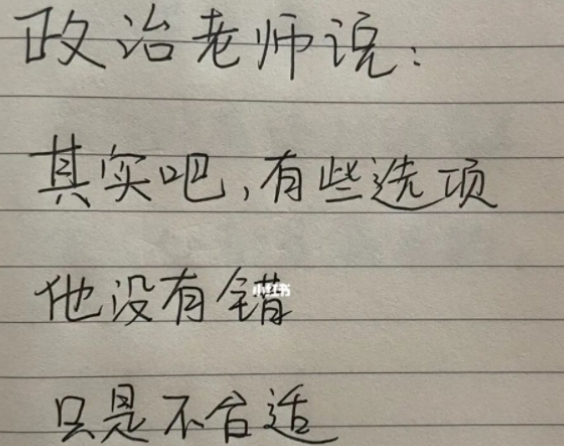 政治老师说：
其实吧，有些选项
他没有错
小红书
只是不合适